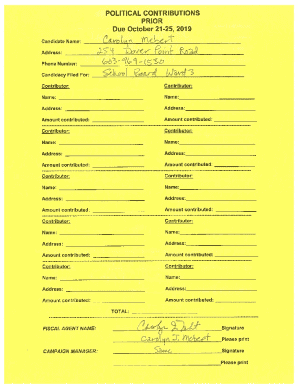 POLITICAL CONTRIBUTIONS
PRIOR
Due October 21-25, 2019
Candidate Name: Carolyn Mebert
Address: 259 Dover Point Road
Phone Number: 603-969-1530
Candidacy Filed For: School Board Ward 3
Contributor: Contributor:
Name: Name:
Address: Address:
Amount contributed: Amount contributed:
Contributor: Contributor:
Name: Name:
Address: Address:
Amount contributed: Amount contributed:
Contributor: Contributor:
Name: Name:
Address: Address:
Amount contributed: Amount contributed:
Contributor: Contributor:
Name: Name:
Address: Address:
Amount contributed: Amount contributed:
Contributor: Contributor:
Name: Name:
Address: Address:
Amount contributed: Amount contributed:
TOTAL:
FISCAL AGENT NAME: Signature
Carolyn J. Mebert Please print
CAMPAIGN MANAGER: Same Signature
Please print